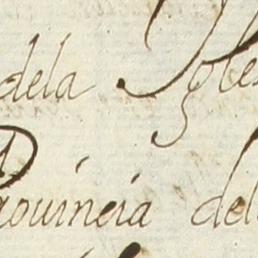 dela Ygles
Prouincia del